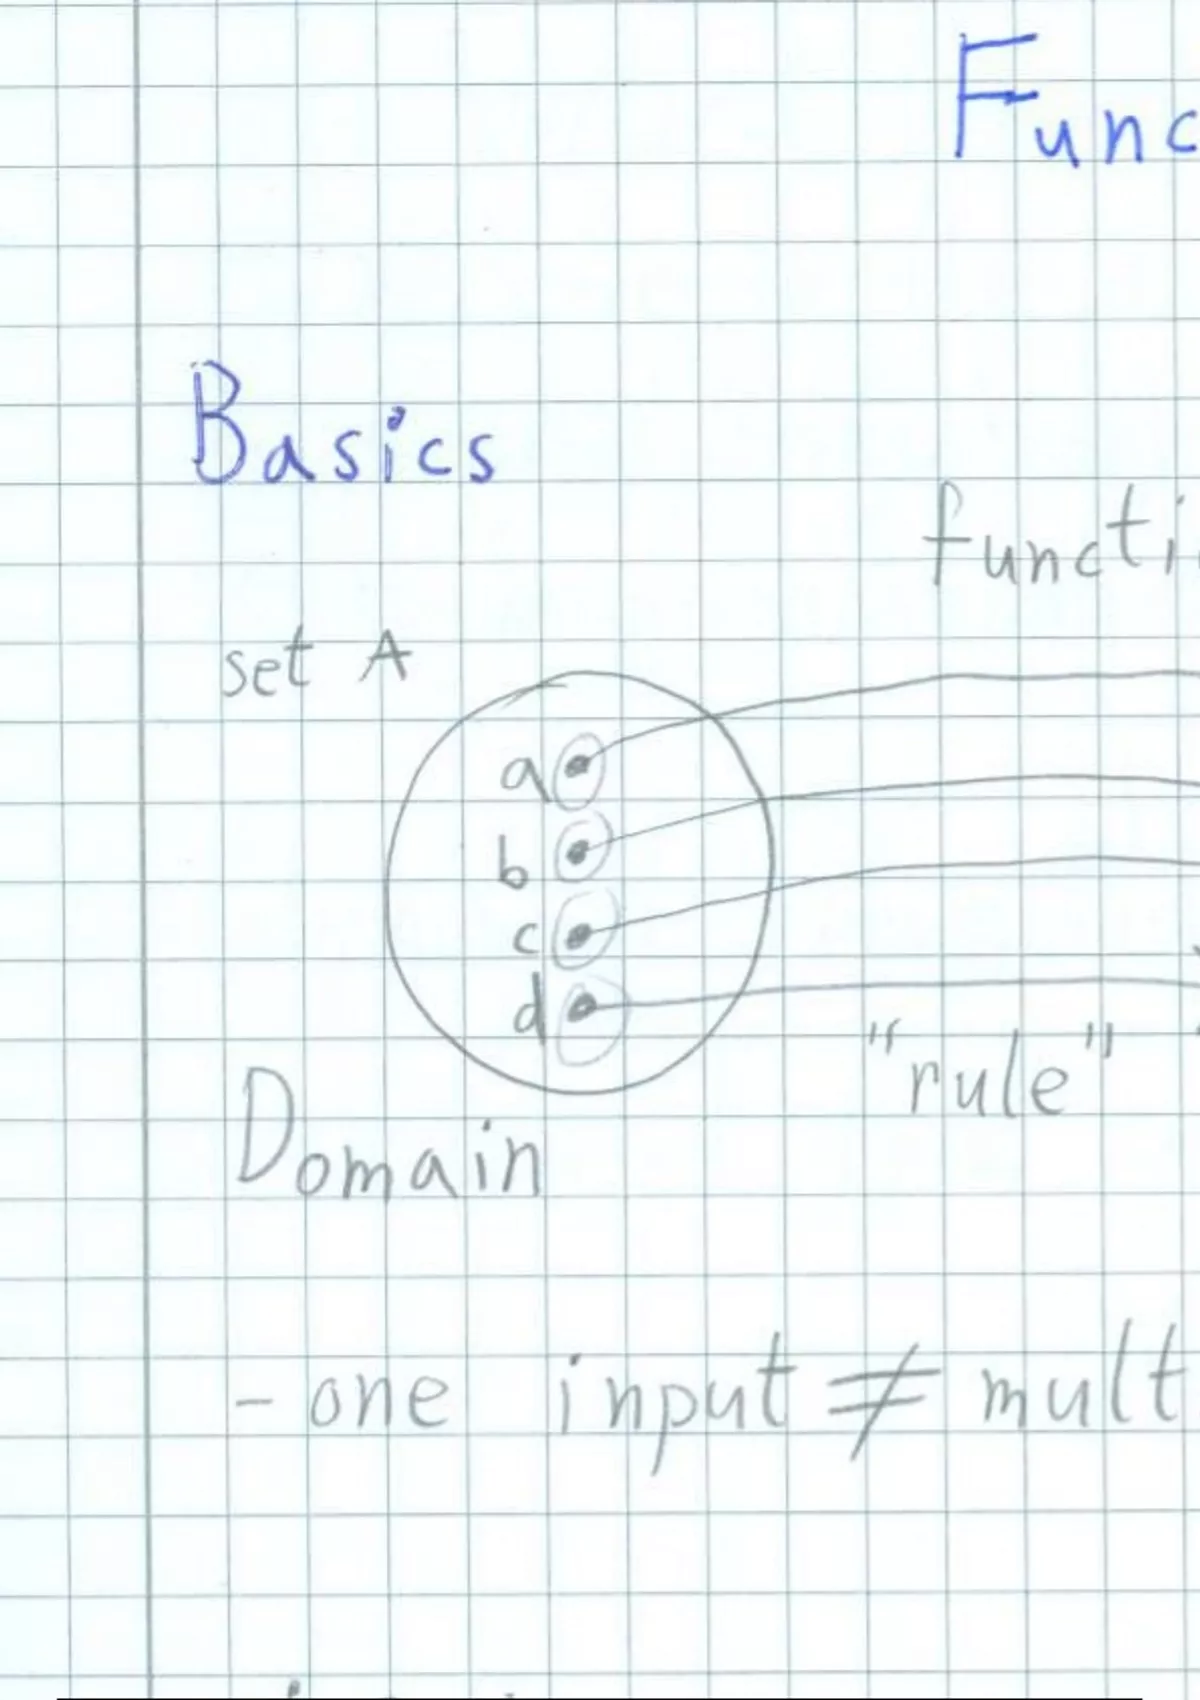 Func
Basics
functi
set A
a
b
c
d
"rule"
Domain
- one input ≠ mult